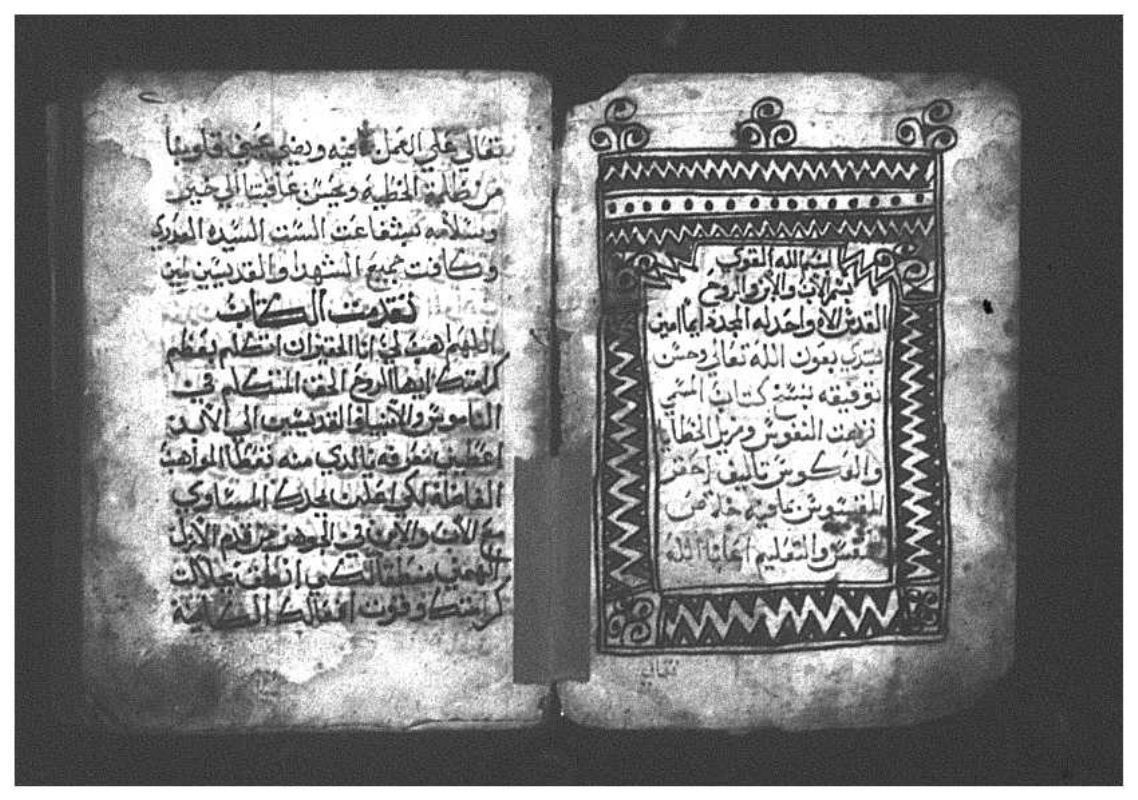 بسم الله القوي
بسم الاب والابن والروح
القدس الاه واحد له المجد دايما امين
نبتدي بعون الله تعالي وحسن
توفيقه بنسخ كتاب المسمي
نزهت النفوس ومزيل الخطايا
والعكوس تاليف احقر
القسوس بما فيه خلاص
النفس والتعليم اعاننا الله
تعالي
تعالي علي العمل بما فيه ويضي عيني قلوبنا
من ظلمة الخطيه ويحسن عاقبتنا الي خير
وسلامه بشفاعت الست السيده العدري
وكافت جميع الشهدا والقديسين امين
مقدمت الكتاب
اللهم هب لي انا الحقير ان اتكلم بعظم
كرامتك ايها الروح الحق المتكلم في
الناموس والانبيا والقديسين الي الابد
اعطيني معرفه يا الدي منه تعطا المواهب
الفاضله لكي اعلن مجدك المساوي
مع الاب والابن في الجوهر من قدم الازل
الهمني منطقا لكي انطق بجلالت
كرامتك وقوت افعالك الكاينة